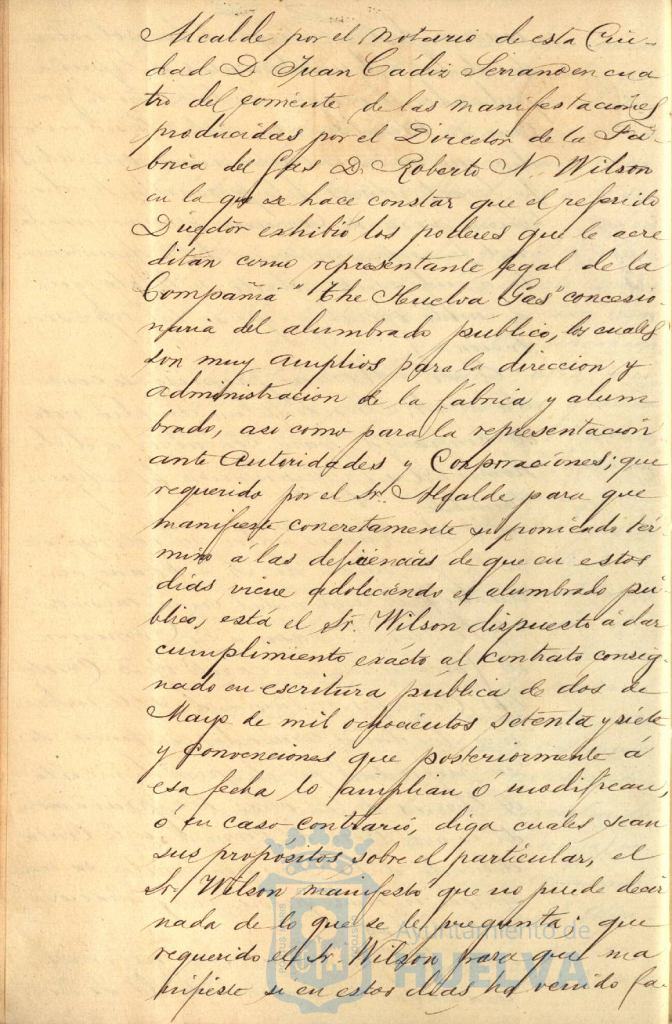 Alcalde por el notario de esta Ciu-
dad D. Juan Cádiz Serrano en cua
tro del corriente de las manifestaciones
producidas por el Director de la Fá-
brica del Gas D. Roberto N. Wilson
en la que se hace constar que el referido
Director exhibió los poderes que le acre
ditan como representante legal de la
Compañia "The Huelva Gas" concesio-
naria del alumbrado público, los cuales
son muy amplios para la direccion y
administracion de la fábrica y alum
brado, así como para la representacion
ante Autoridades y Corporaciones; que
requerido por el Sr. Alcalde para que
manifieste concretamente si poniendo tér-
mino á las deficiencias de que en estos
dias viene adoleciendo el alumbrado pú-
blico, está el Sr. Wilson dispuesto á dar
cumplimiento exacto al contrato consig-
nado en escritura pública de dos de
Mayo de mil ochocientos setenta y siete
y convenciones que posteriormente á
esa fecha lo amplian ó modifican,
ó en caso contrario, diga cuales sean
sus propósitos sobre el particular, el
Sr. Wilson manifestó que no puede decir
nada de lo que se le pregunta; que
requerido el Sr. Wilson para que ma
nifieste si en estos dias ha venido fa-
Ayuntamiento de
HUELVA